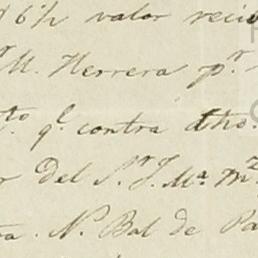 6h valor reci
M. Herrera pr
to. ql. contra dho.
r del Sr. J. Ma. Mz
ra. N. Bal de Pa